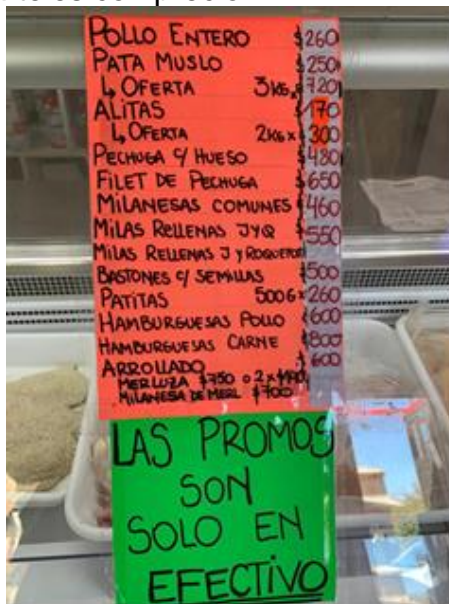 POLLO ENTERO $260
PATA MUSLO $250
↳ OFERTA 3KGx $720
ALITAS $170
↳ OFERTA 2KGx $300
PECHUGA C/ HUESO $480
FILET DE PECHUGA $650
MILANESAS COMUNES $460
MILAS RELLENAS JYQ $550
MILAS RELLENAS J Y ROQUEFORT
BASTONES C/ SEMILLAS $500
PATITAS 500G x 260
HAMBURGUESAS POLLO $600
HAMBURGUESAS CARNE $800
ARROLLADO $600
MERLUZA $750 o 2 x
MILANESA DE MERL $700
LAS PROMOS
SON
SOLO EN
EFECTIVO